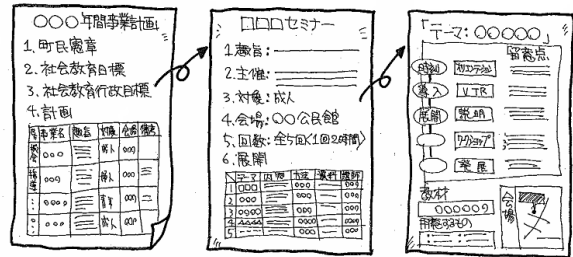 ○○○年間事業計画
1.町民憲章
2.社会教育目標
3.社会教育行政目標
4.計画
事業名 趣旨 対象 会場 備考
○○○ 成人 ○○○
○○○ 婦人 ○○○
○○○ 青年 ○○○
○○○ 成人 ○○○
□□□セミナー
1.趣旨:
2.主催:
3.対象:成人
4.会場:○○公民館
5.回数:全5回〈1回2時間〉
6.展開
テーマ 内容 方法 資料 講師
1 ○○○ ○○○ ○○○
2 ○○○ ○○○ ○○○
3 ○○○○ ○○○ ○○○
4
5
「テーマ:○○○○○」
時刻 留意点
オリエンテーション
導入 VTR
展開 説明
ワークショップ
発展
教材
○○○○○○
用意するもの
会場